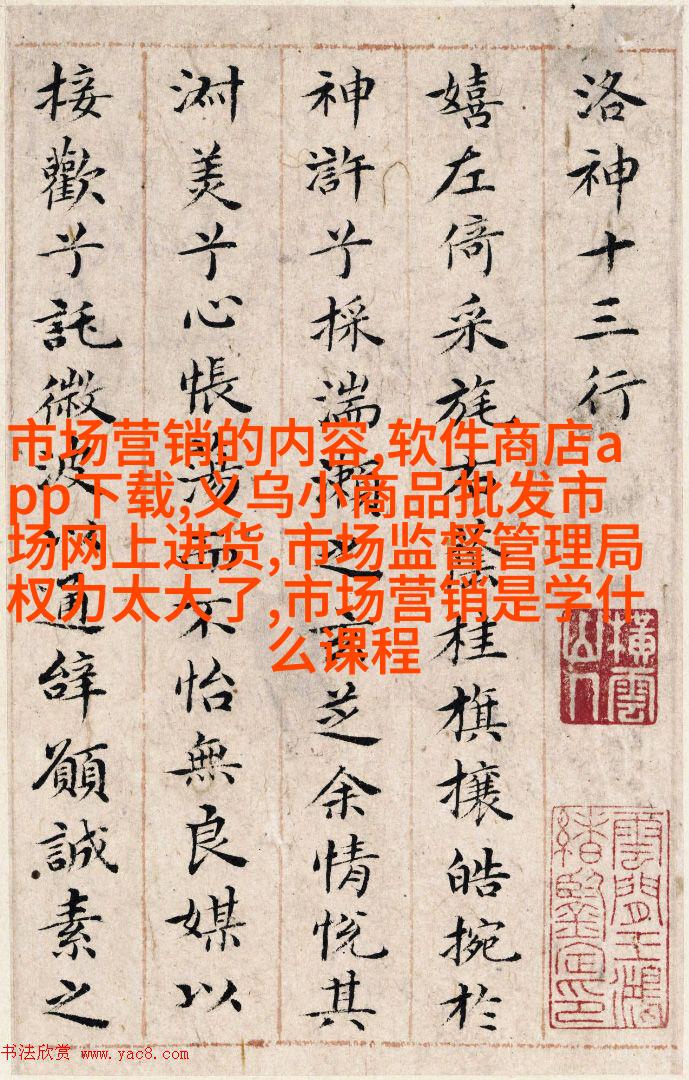 洛神十三行
嬉左倚采旄右桂旗攘皓捥於
神滸兮採湍瀨之玄芝余情悅其
淑美兮心悵蕩而不怡無良媒以
接歡兮託微波以通辭願誠素之
市场营销的内容,软件商店a
pp下载,义乌小商品批发市
场网上进货,市场监督管理局
权力太大了,市场营销是学什
么课程
橫雲山人
雲間王鴻緒鑒定印
书法欣赏 www.yac8.com